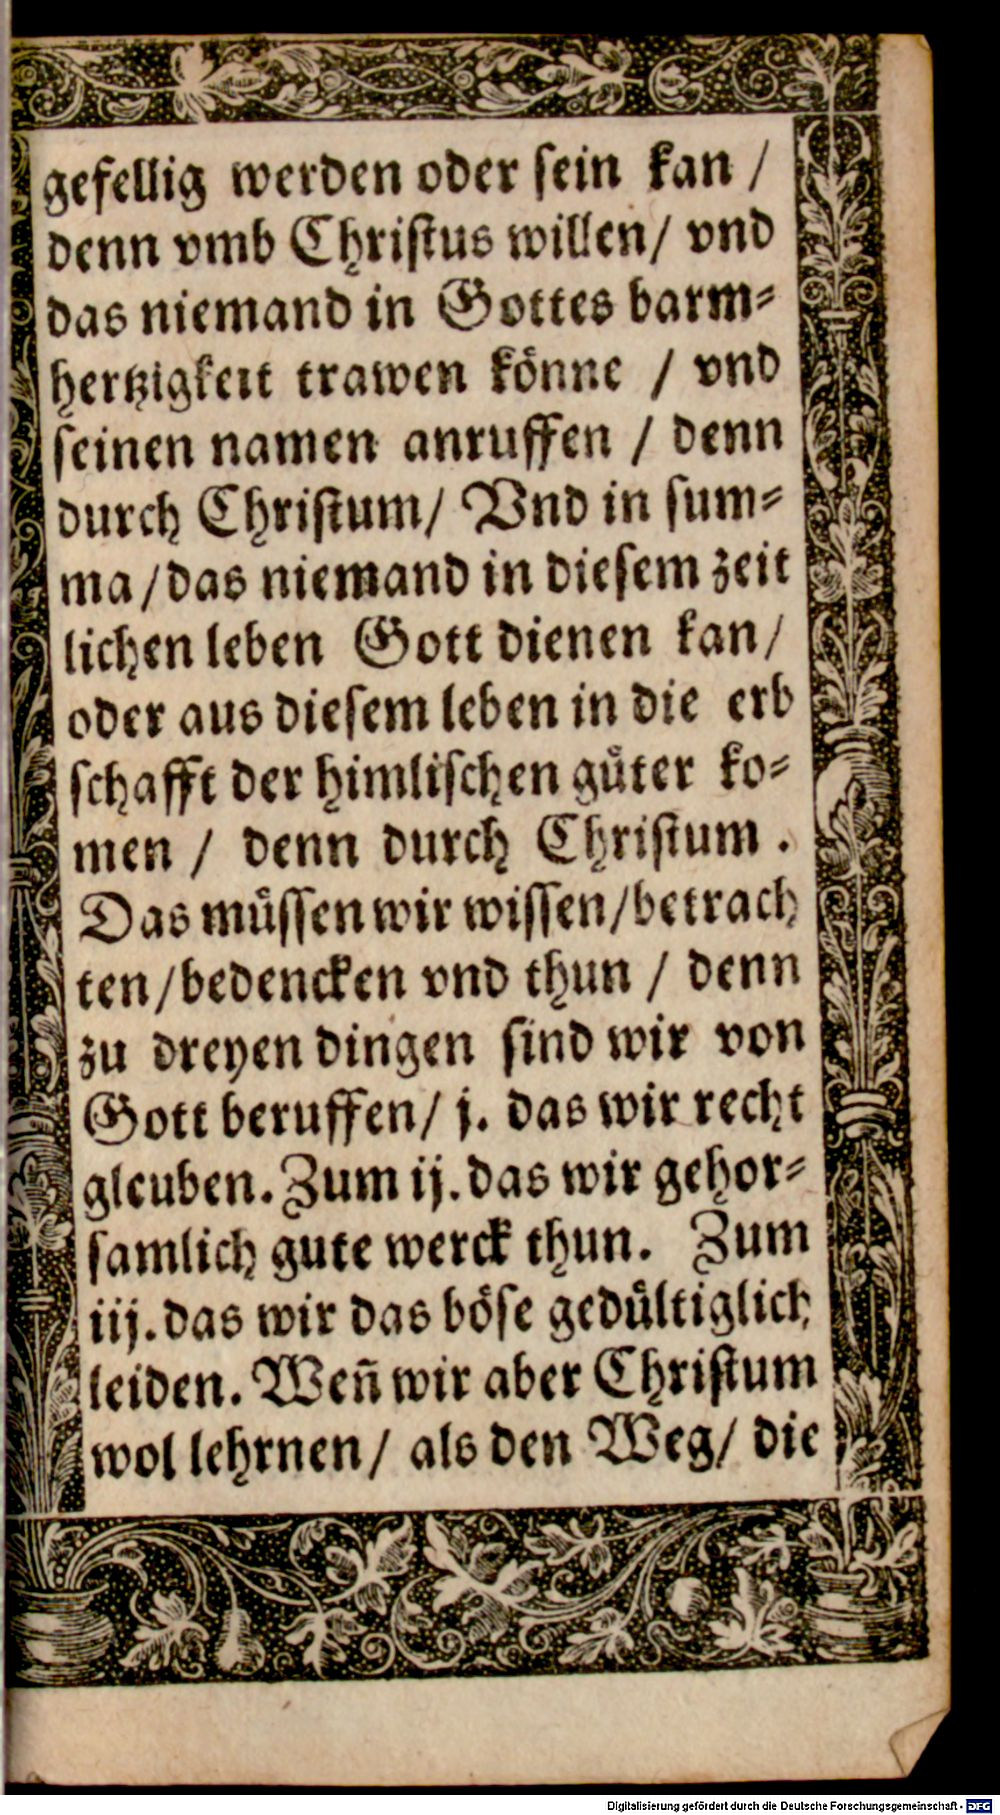 gefellig werden oder ſein kan /
denn vmb Chriſtus willen/ vnd
das niemand in Gottes barm⸗
hertzigkeit trawen koͤnne / vnd
ſeinen namen anruffen / denn
durch Chriſtum/ Vnd in ſum⸗
ma /das niemand in dieſem zeit
lichen leben Gott dienen kan/
oder aus dieſem leben in die erb
ſchafft der himliſchen guͤter ko⸗
men / denn durch Chriſtum .
Das muͤſſen wir wiſſen/betrach
ten/bedencken vnd thun / denn
zu dreyen dingen ſind wir von
Gott beruffen/ j. das wir recht
gleuben. Zum ij. das wir gehor⸗
ſamlich gute werck thun. Zum
iij. das wir das boͤſe geduͤltiglich
leiden. Weñ wir aber Chriſtum
wol lehrnen/ als den Weg/ die
Digitalisierung gefördert durch die Deutsche Forschungsgemeinschaft - DFG